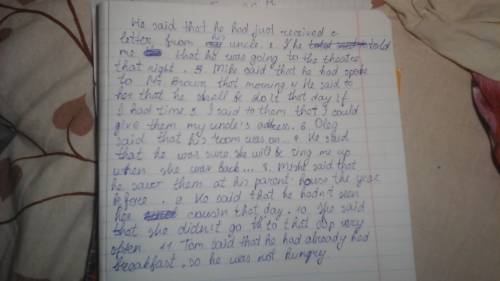 He said that he had just received a
letter from his uncle. 2. She told
me that he was going to the theatre
that night. 3. Mike said that he had spoke
to Mr Brown that morning 4 He said to
her that he shall be do it that day if
I had time 5. I said to them that I could
give them my uncle's address. 6. Oleg
said that his room was on... 7. He said
that he was sure she will be ring me up
when she was back... 8. Misha said that
he saw them at his parent house the year
before. 9. He said that he hadn't seen
her cousin that day. 10. She said
that she didn't go to that shop very
often. 11. Tom said that he had already had
breakfast, so he was not hungry.